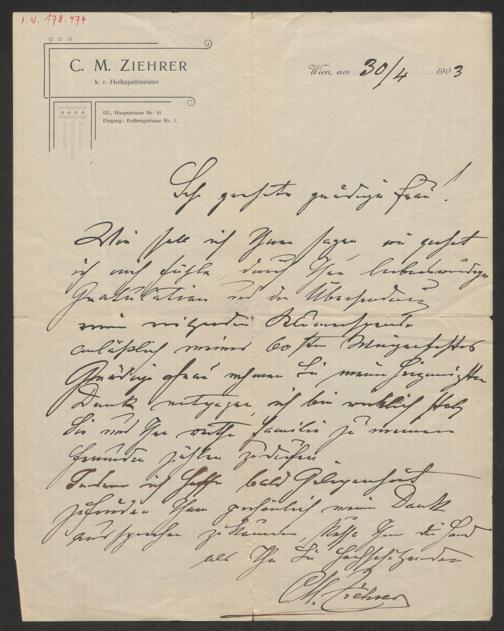 I.N. 178.474
C. M. ZIEHRER
k. r. Hofkapellmeister
III., Hauptstrasse Nr.
Eingang: Erdbergstrasse Nr. 1.
Wien, am 30/4 1903
Sehr geehrte gnädige Frau!
Wie soll ich Ihnen sagen, wie geehrt
ich mich fühle, durch Ihre liebenswürdige
Gratulation und die Übersendung
reizenden Blumenspende
anläßlich meines 60sten Wiegenfestes
Gnädige Frau nehmen Sie meinen herzinnigsten
Dank entgegen, ich bin wirklich stolz
Sie und Ihre werthe Familie zu meinen
Freunden zählen zu dürfen.
Indem ich hoffe bald Gelegenheit
zu finden Ihnen persönlich meinen Dank
aussprechen zu können, küsse Ihnen die Hand
als Ihr Sie hochschätzender
CM. Ziehrer